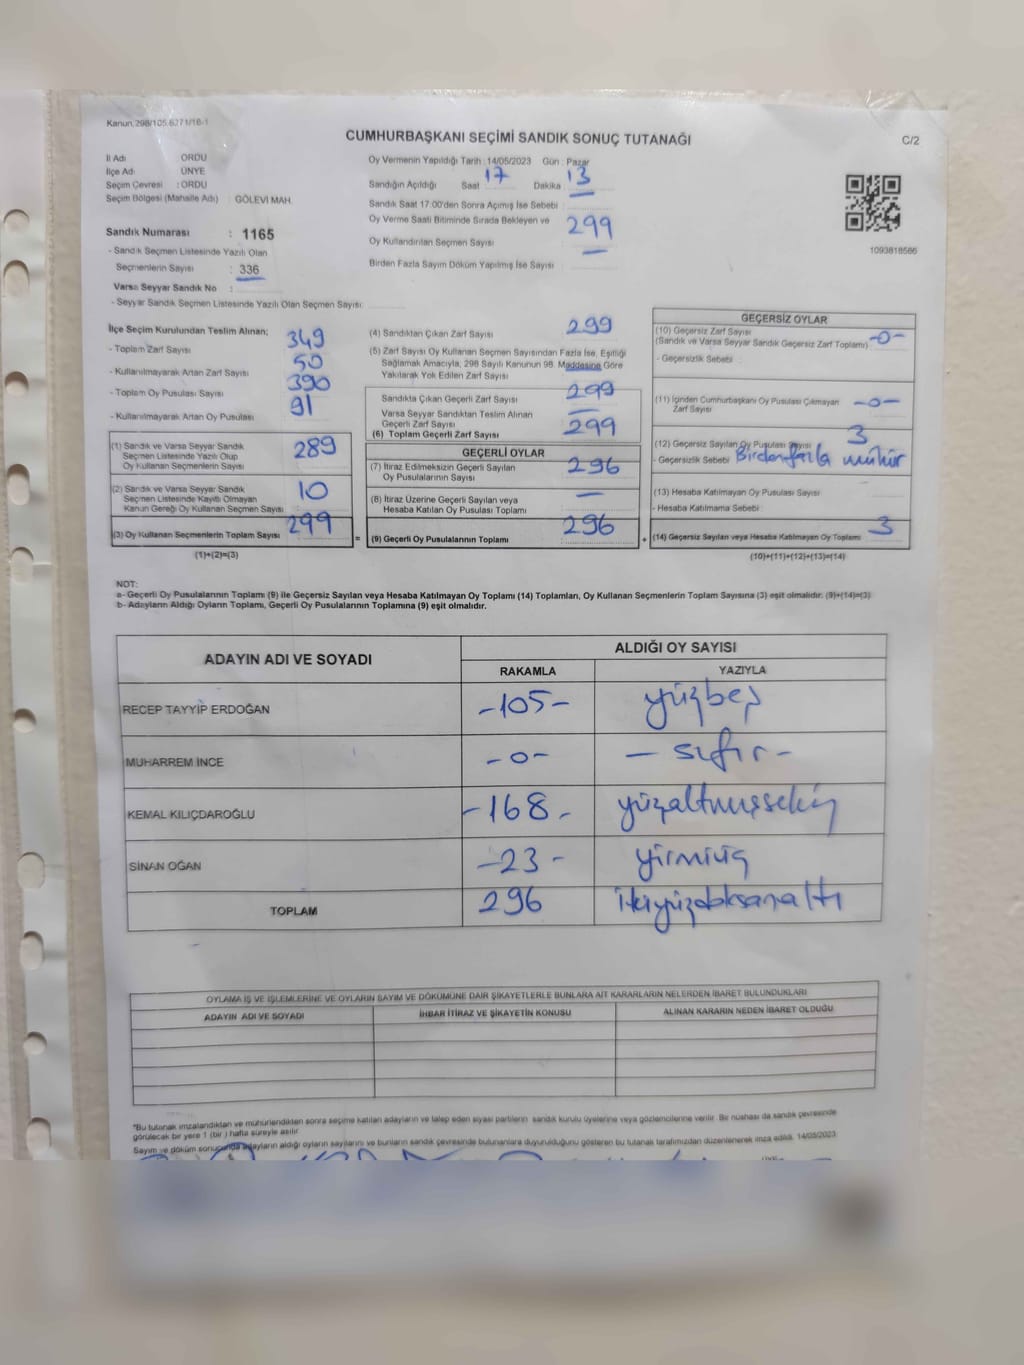 Kanun, 298/105.6271/16-1
CUMHURBAŞKANI SEÇİMİ SANDIK SONUÇ TUTANAĞI
C/2
İl Adı ORDU
İlçe Adı ÜNYE
Seçim Çevresi : ORDU
Seçim Bölgesi (Mahalle Adı) : GÖLEVİ MAH.
Sandık Numarası : 1165
- Sandık Seçmen Listesinde Yazılı Olan
Seçmenlerin Sayısı : 336
Varsa Seyyar Sandık No :
- Seyyar Sandık Seçmen Listesinde Yazılı Olan Seçmen Sayısı:
Oy Vermenin Yapıldığı Tarih :14/05/2023 Gün : Pazar
Sandığın Açıldığı Saat 17 Dakika 13
Sandık Saat 17:00'den Sonra Açımış İse Sebebi :
Oy Verme Saati Bitiminde Sırada Bekleyen ve
Oy Kullandırılan Seçmen Sayısı 299
Birden Fazla Sayım Döküm Yapılmış İse Sayısı
1093818566
İlçe Seçim Kurulundan Teslim Alınan;
- Toplam Zarf Sayısı 349
- Kullanılmayarak Artan Zarf Sayısı 50
- Toplam Oy Pusulası Sayısı 390
- Kullanılmayarak Artan Oy Pusulası 91
(1) Sandık ve Varsa Seyyar Sandık
Seçmen Listesinde Yazılı Olup
Oy Kullanan Seçmenlerin Sayısı 289
(2) Sandık ve Varsa Seyyar Sandık
Seçmen Listesinde Kayıtlı Olmayan
Kanun Gereği Oy Kullanan Seçmen Sayısı 10
(3) Oy Kullanan Seçmenlerin Toplam Sayısı 299
(1)+(2)=(3)
(4) Sandıktan Çıkan Zarf Sayısı 299
(5) Zarf Sayısı Oy Kullanan Seçmen Sayısından Fazla İse, Eşitliği
Sağlamak Amacıyla, 298 Sayılı Kanunun 98. Maddesine Göre
Yakılarak Yok Edilen Zarf Sayısı
Sandıkta Çıkan Geçerli Zarf Sayısı 299
Varsa Seyyar Sandıktan Teslim Alınan
Geçerli Zarf Sayısı —
(6) Toplam Geçerli Zarf Sayısı 299
GEÇERLİ OYLAR
(7) İtiraz Edilmeksizin Geçerli Sayılan
Oy Pusulalarının Sayısı 296
(8) İtiraz Üzerine Geçerli Sayılan veya
Hesaba Katılan Oy Pusulası Toplamı —
= (9) Geçerli Oy Pusulalarının Toplamı 296 +
GEÇERSİZ OYLAR
(10) Geçersiz Zarf Sayısı
(Sandık ve Varsa Seyyar Sandık Geçersiz Zarf Toplamı) -0-
- Geçersizlik Sebebi :
(11) İçinden Cumhurbaşkanı Oy Pusulası Çıkmayan
Zarf Sayısı -0-
(12) Geçersiz Sayılan Oy Pusulası Sayısı 3
- Geçersizlik Sebebi Birden fazla mühür
(13) Hesaba Katılmayan Oy Pusulası Sayısı
- Hesaba Katılmama Sebebi
(14) Geçersiz Sayılan veya Hesaba Katılmayan Oy Toplamı 3
(10)+(11)+(12)+(13)=(14)
NOT:
a- Geçerli Oy Pusulalarının Toplamı (9) ile Geçersiz Sayılan veya Hesaba Katılmayan Oy Toplamı (14) Toplamları, Oy Kullanan Seçmenlerin Toplam Sayısına (3) eşit olmalıdır. (9)+(14)=(3)
b- Adayların Aldığı Oyların Toplamı, Geçerli Oy Pusulalarının Toplamına (9) eşit olmalıdır.
ADAYIN ADI VE SOYADI ALDIĞI OY SAYISI
RAKAMLA YAZIYLA
RECEP TAYYİP ERDOĞAN -105- yüzbeş
MUHARREM İNCE -0- - sıfır -
KEMAL KILIÇDAROĞLU -168- yüzaltmışsekiz
SİNAN OĞAN -23- yirmiüç
TOPLAM 296 ikiyüzdoksanaltı
OYLAMA İŞ VE İŞLEMLERİNE VE OYLARIN SAYIM VE DÖKÜMÜNE DAİR ŞİKAYETLERLE BUNLARA AİT KARARLARIN NELERDEN İBARET BULUNDUKLARI
ADAYIN ADI VE SOYADI İHBAR İTİRAZ VE ŞİKAYETİN KONUSU ALINAN KARARIN NEDEN İBARET OLDUĞU
*Bu tutanak imzalandıktan ve mühürlendikten sonra seçime katılan adayların ve talep eden siyasi partilerin sandık kurulu üyelerine veya gözlemcilerine verilir. Bir nüshası da sandık çevresinde
görülecek bir yere 1 (bir ) hafta süreyle asılır.
Sayım ve döküm sonucunda adayların aldığı oyların sayılarını ve bunların sandık çevresinde bulunanlara duyurulduğunu gösteren bu tutanak tarafımızdan düzenlenerek imza edildi. 14/05/2023